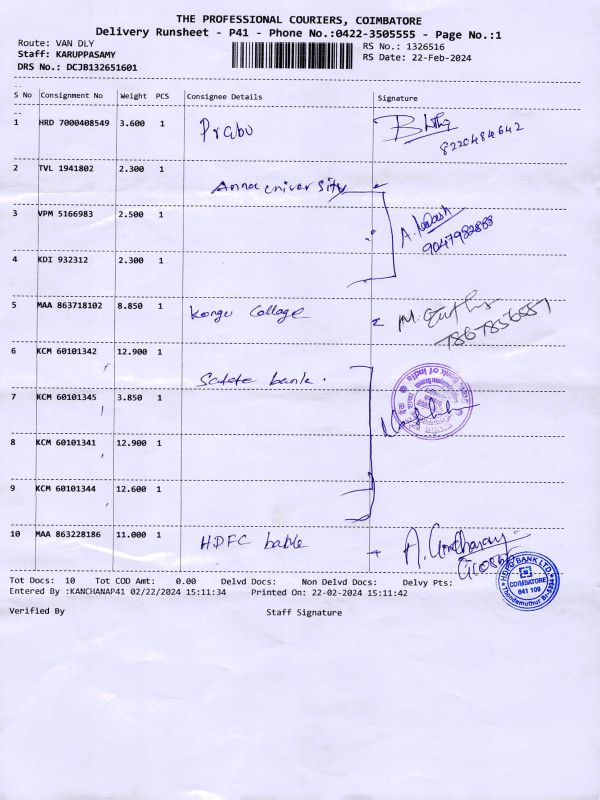 THE PROFESSIONAL COURIERS, COIMBATORE
Delivery Runsheet - P41 - Phone No.:0422-3505555 - Page No.:1
Route: VAN DLY RS No.: 1326516
Staff: KARUPPASAMY RS Date: 22-Feb-2024
DRS No.: DCJB132651601
S No Consignment No Weight PCS Consignee Details Signature
1 HRD 7000408549 3.600 1 Prabu
8220484642
2 TVL 1941802 2.300 1
Anna university
3 VPM 5166983 2.500 1
9047982888
4 KDI 932312 2.300 1
5 MAA 863718102 8.850 1 Kongu Collage M.
7867856557
6 KCM 60101342 12.900 1
bank.
7 KCM 60101345 3.850 1
8 KCM 60101341 12.900 1
9 KCM 60101344 12.600 1
10 MAA 863228186 11.000 1 HDFC A.
HDFC BANK LTD
COIMBATORE
641 109
Tot Docs: 10 Tot COD Amt: 0.00 Delvd Docs: Non Delvd Docs: Delvy Pts:
Entered By :KANCHANAP41 02/22/2024 15:11:34 Printed On: 22-02-2024 15:11:42
Verified By Staff Signature